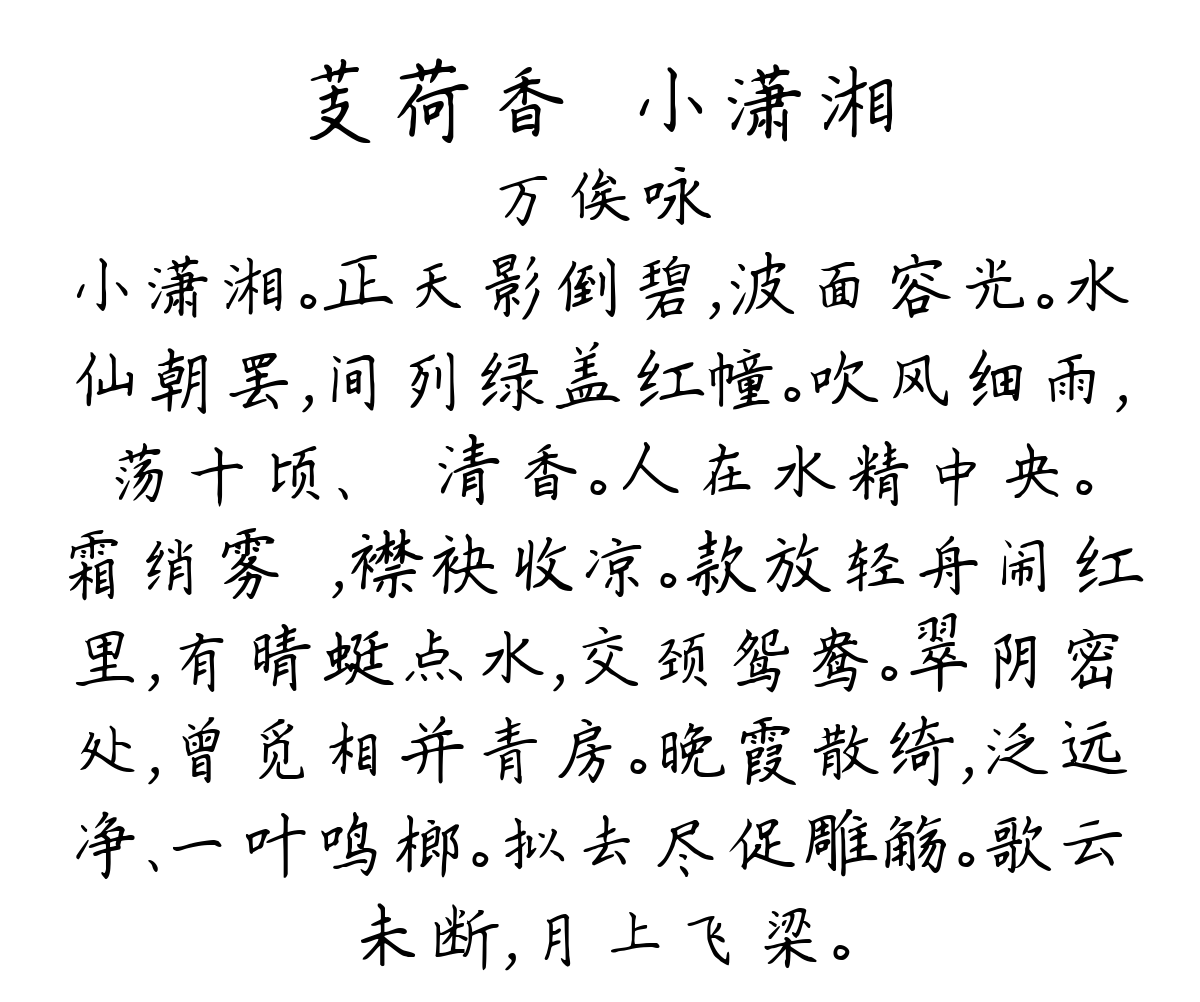 芰荷香 小潇湘
万俟咏
小潇湘。正天影倒碧,波面容光。水
仙朝罢,间列绿盖红幢。吹风细雨,
荡十顷、 清香。人在水精中央。
霜绡雾 ,襟袂收凉。款放轻舟闹红
里,有晴蜓点水,交颈鸳鸯。翠阴密
处,曾觅相并青房。晚霞散绮,泛远
净、一叶鸣榔。拟去尽促雕觞。歌云
未断,月上飞梁。